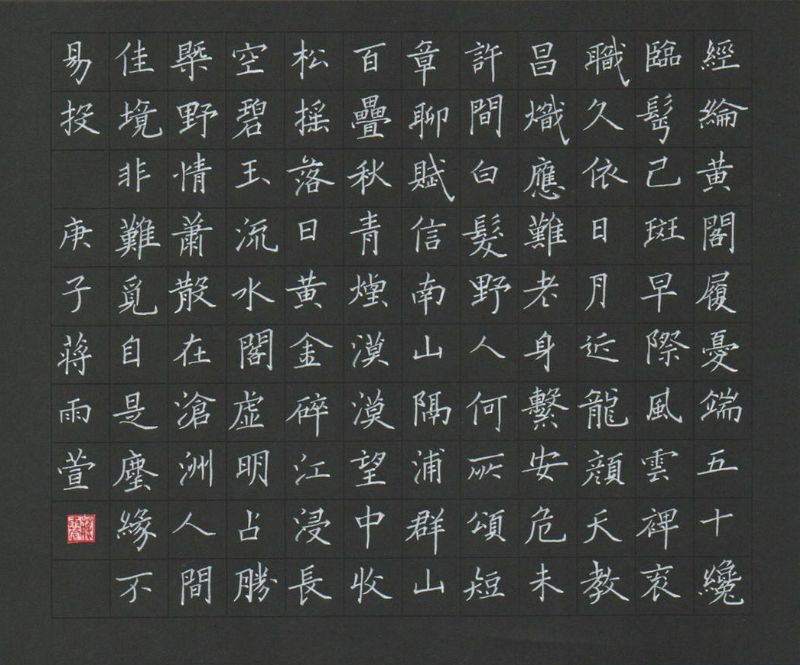 經綸黃閣履憂端五十纔
臨髩己斑早際風雲裨袞
職久依日月近龍顏天教
昌熾應難老身繫安危未
許間白髮野人何所頌短
章聊賦信南山隅浦群山
百疊秋青煙漠漠望中收
松摇落日黃金碎江浸長
空碧玉流水閣虛明占勝
槩野情蕭散在滄洲人間
佳境非難覓自是塵緣不
易投 庚子蔣雨萱